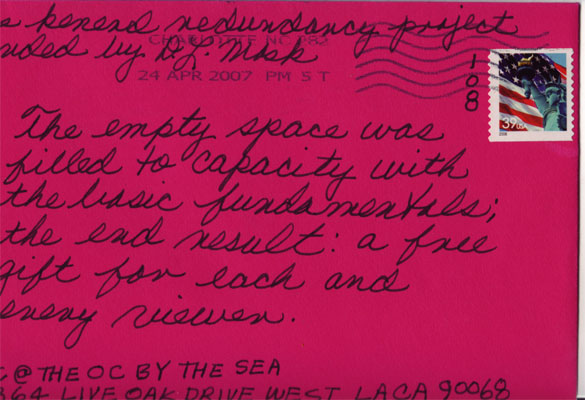 redundancy project
nded by D.L. Mosk
CHARLOTTE NC 282
24 APR 2007 PM 5 T
108
39 USA
The empty space was
filled to capacity with
the basic fundamentals;
the end result: a free
gift for each and
every viewer.
@ THE OC BY THE SEA
364 LIVE OAK DRIVE WEST LA CA 90068